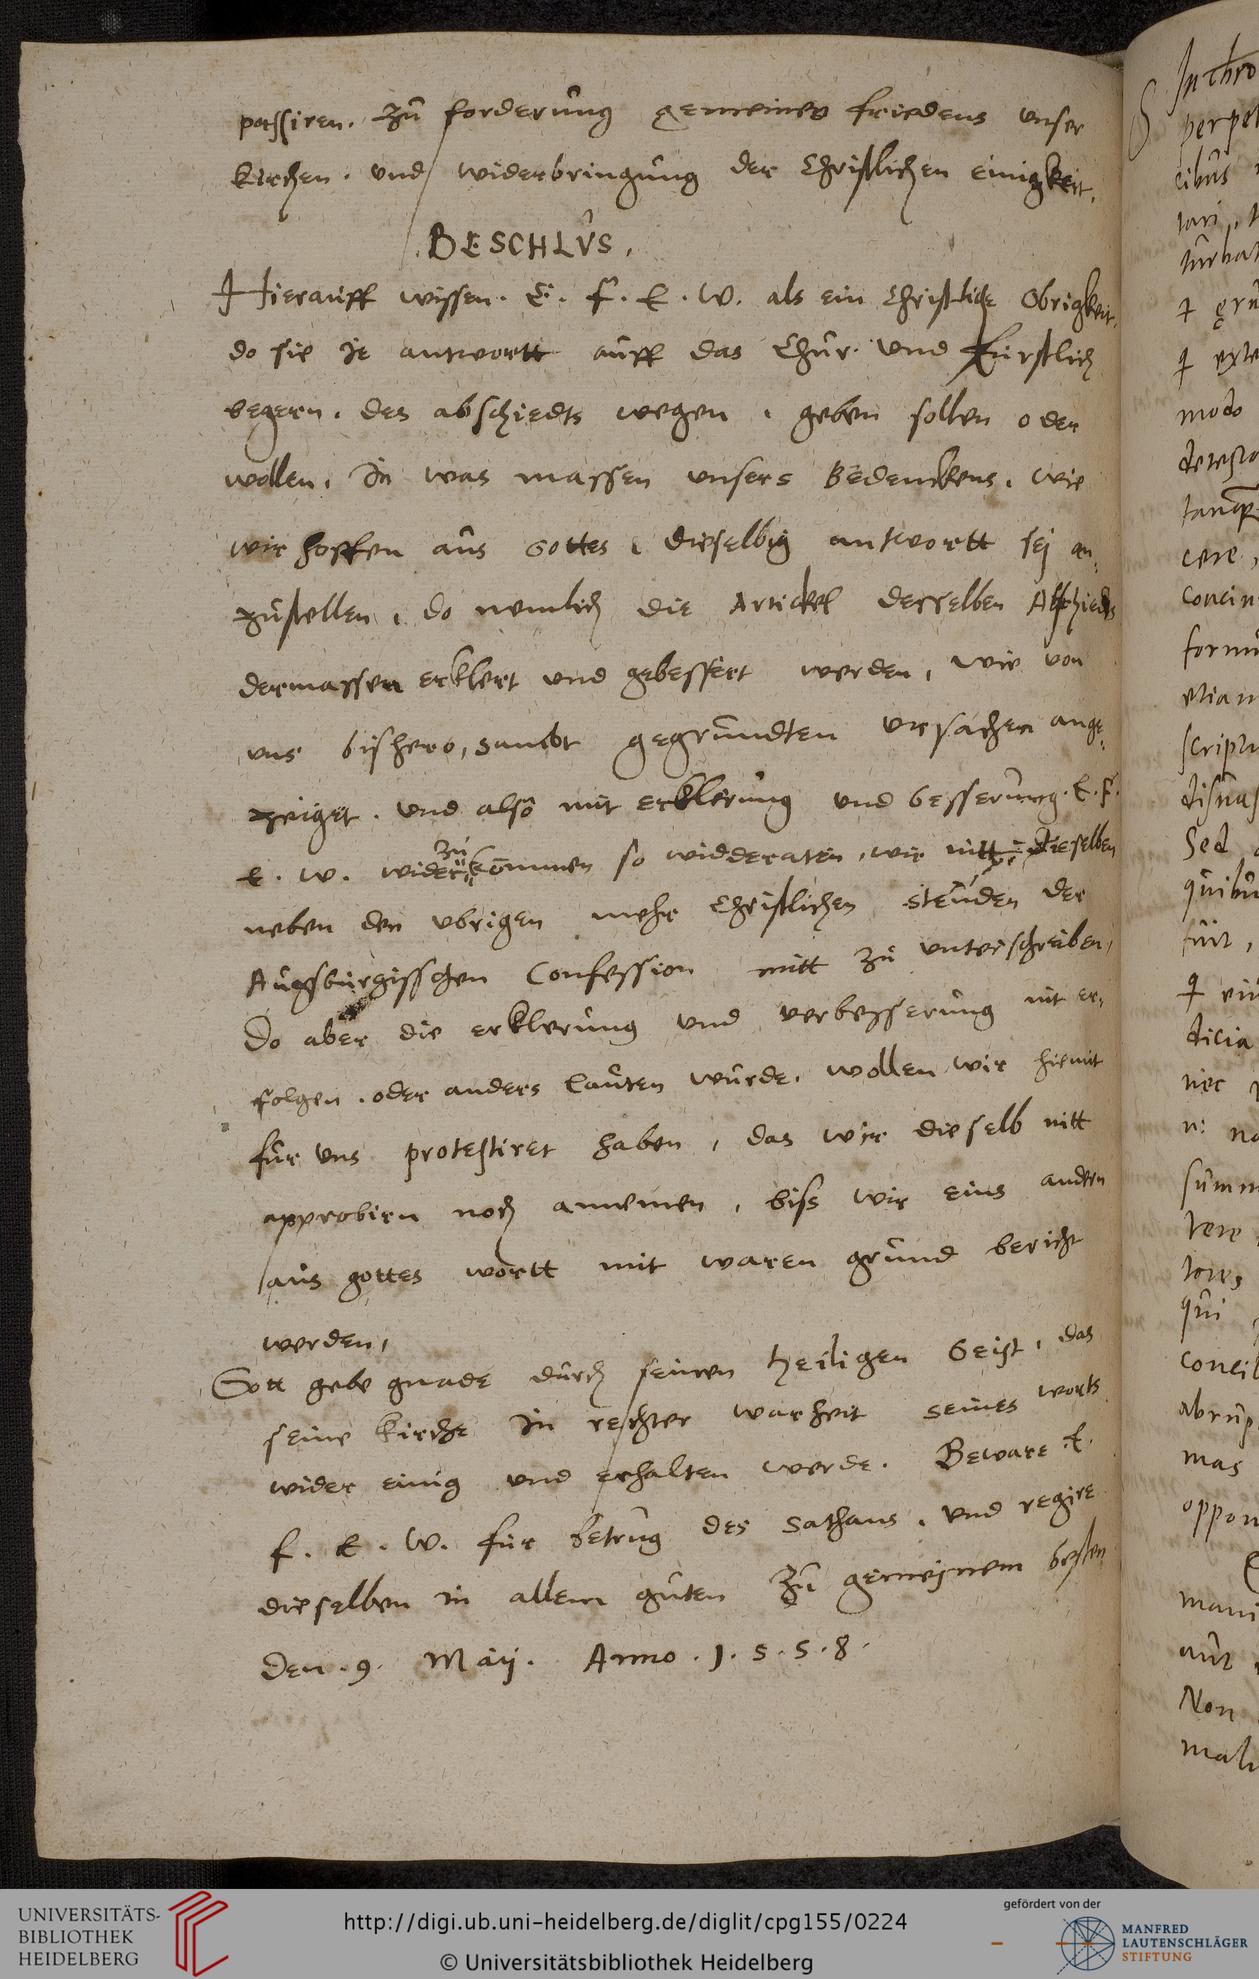 passiren. Zu forderung gemeines friedens unser
kirchen. und widerbringung der Christlichen einigkeit.
BESCHLUS.
Hierauff wissen. E. F. E. W. als ein Christliche Obrigkeit.
do sie je antwortt auff das Chur. und fürstlich
begern. des abschiedts wegen, geben sollen oder
wollen, In was massen unsers Bedenckens, wie
wir hoffen aus Gottes, dieselbig antwortt sej an,
zustellen, do nemlich die Artickel desselben Abschieds
dermassen erklert und gebessert werden, wie von
uns bishero, sambt gegrundten ursachen ange,
zeiget. und also mit erklerung und besserung. E. F.
E. W. wider zu kommen so widderaten, wir nitt dieselben
neben den ubrigen mehr Christlichen stenden der
Augsburgisschen Confession mitt zu unterschreiben,
Do aber die erklerung und verbesserung nit er,
folgen. oder anders lauten wurde. wollen wir hiemit
für uns protestiret haben, das wir dieselb nitt
approbirn noch annemen, biss wir eins andern
aus gottes wortt mit waren grund bericht
werden,
Gott gebe gnade durch seinen heiligen Geist, das
seine kirche in rechter warheit seines worts
wider einig und erhalten werde. Beware E.
F. E. W. für betrug des Sathans, und regire
dieselben in allem guten Zu gemejnem besten
Den. 9. Maij. Anno. 1. 5. 5. 8.
In
perpet
cibus
tari
turbat
modo
cere,
concin
form
etiam
scriptu
Sed
quibu
fuit,
dicia
nec
n: na
summ
tere
qui
concil
abrup
mas
oppon
aut
Non
malu
UNIVERSITÄTS-
BIBLIOTHEK
HEIDELBERG
http://digi.ub.uni-heidelberg.de/diglit/cpg155/0224
© Universitätsbibliothek Heidelberg
gefördert von der
MANFRED
LAUTENSCHLÄGER
STIFTUNG